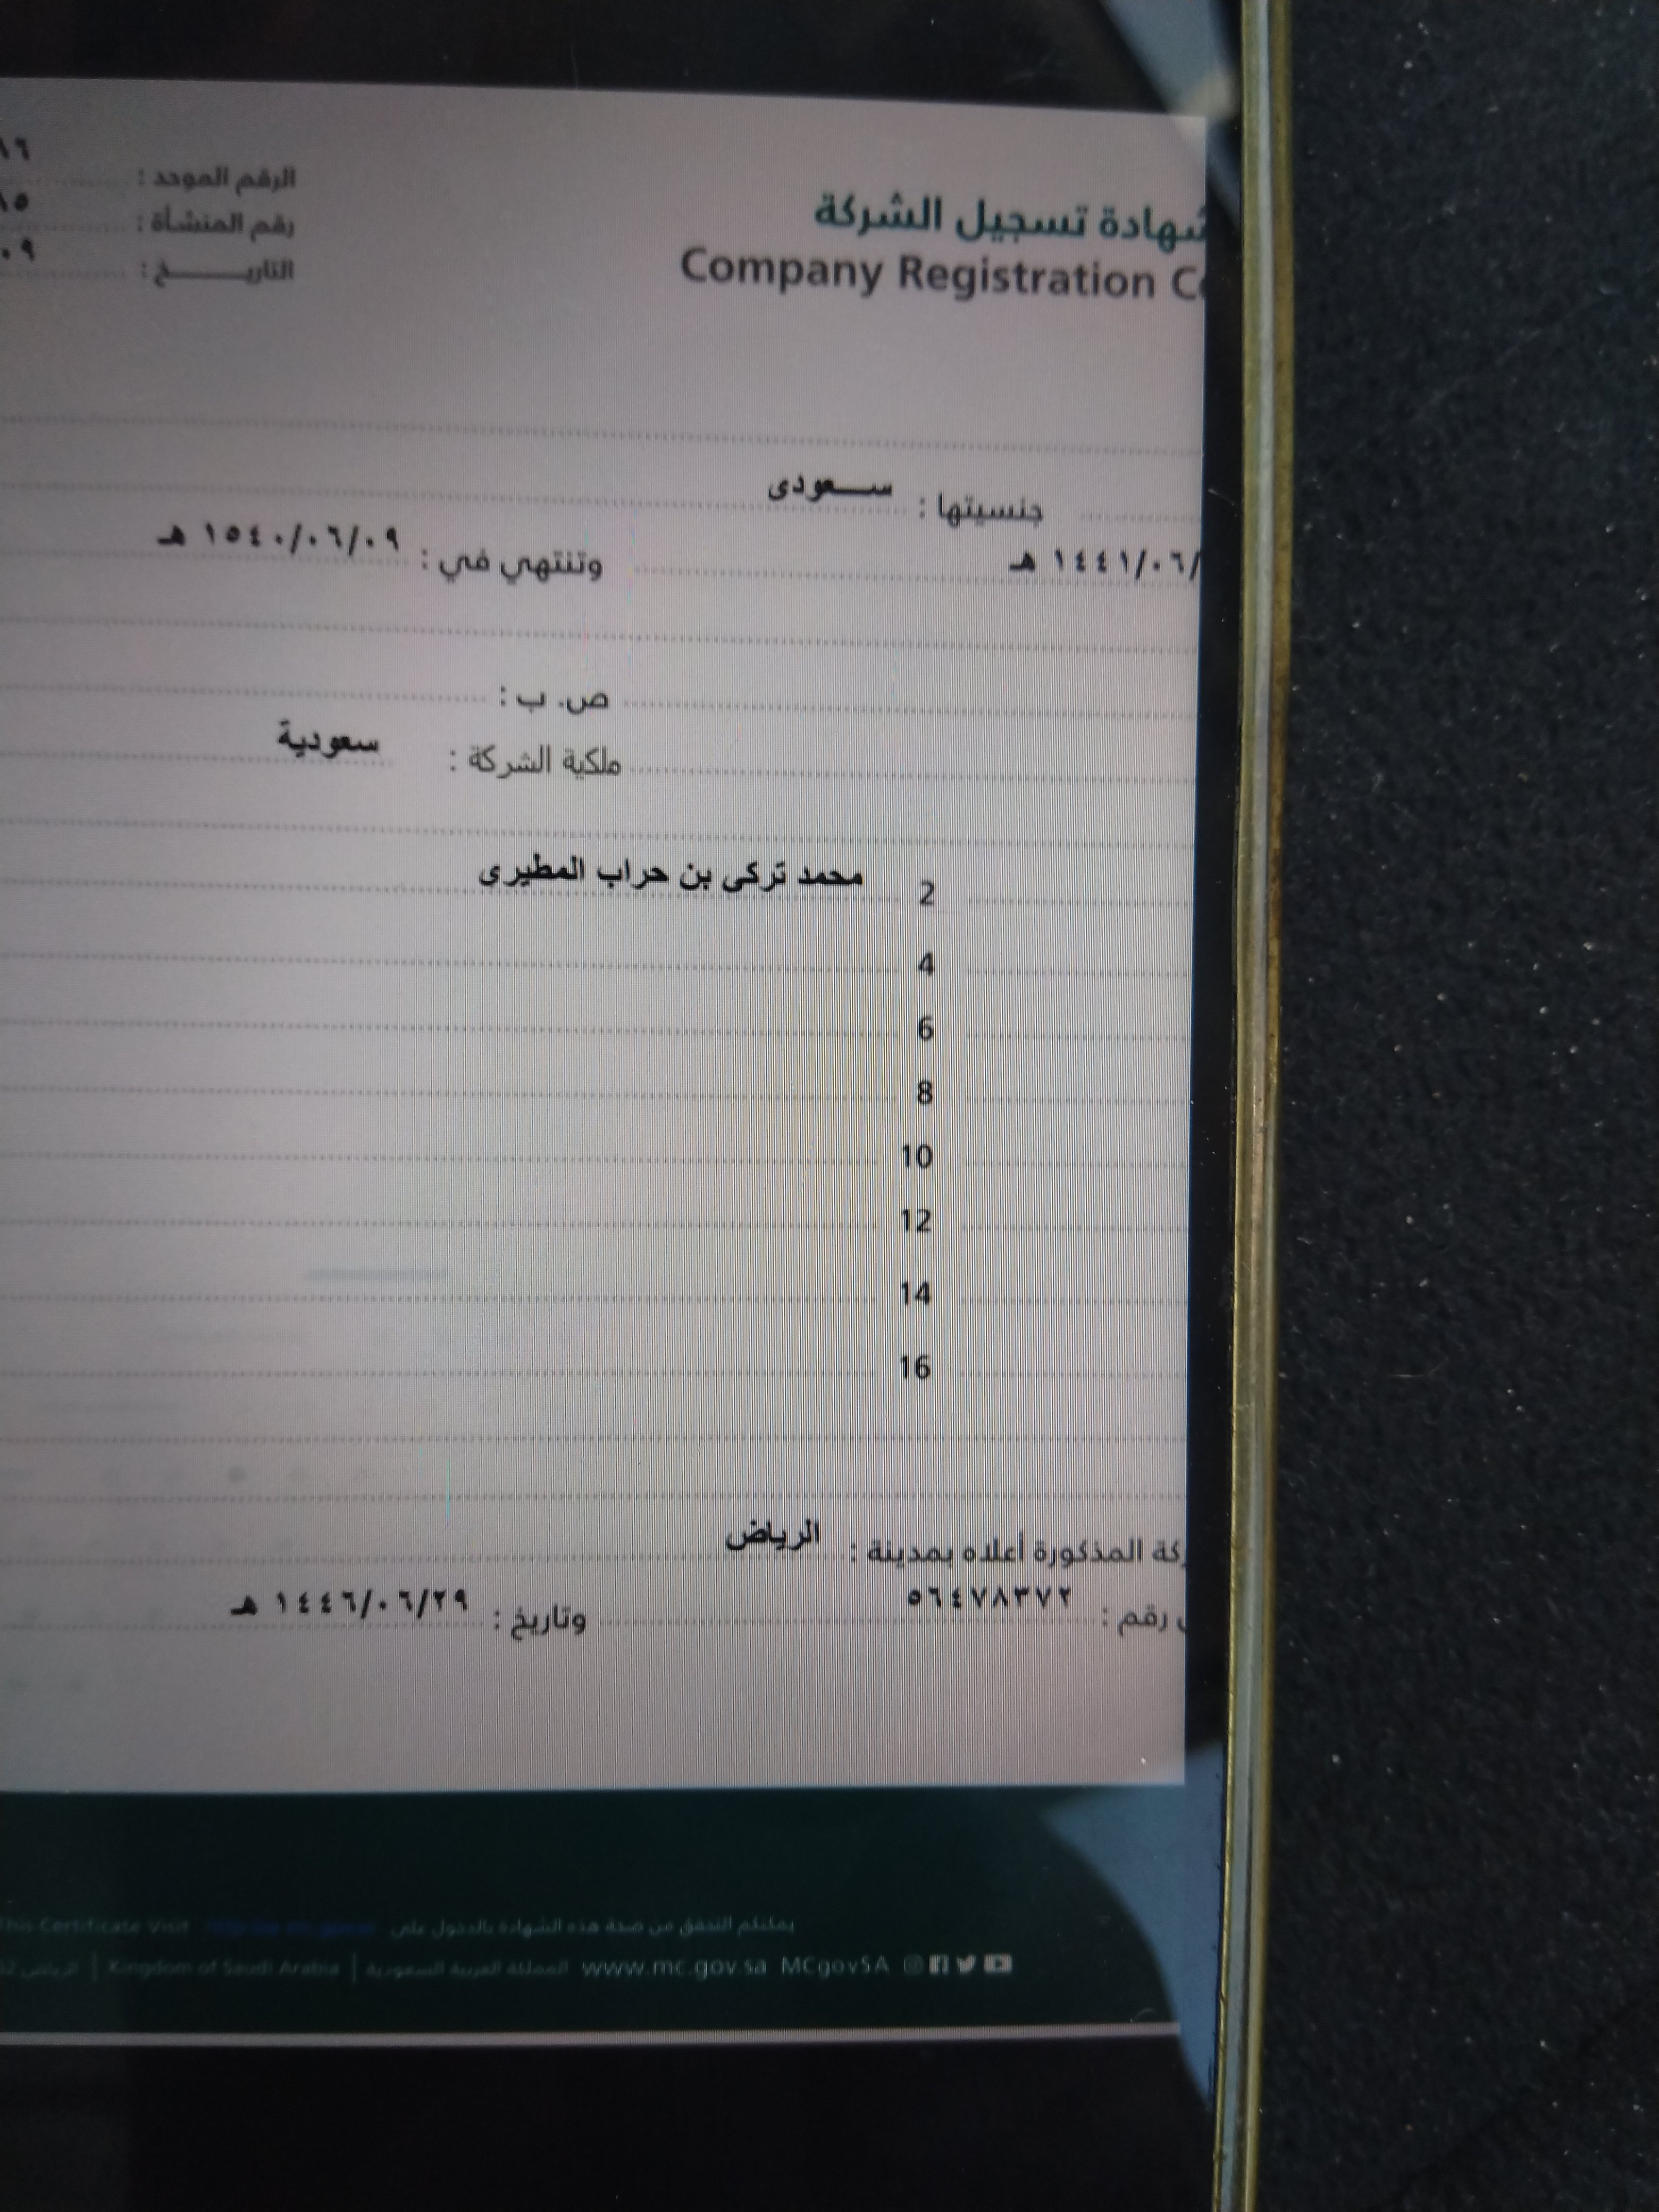 شهادة تسجيل الشركة
Company Registration
الرقم الموحد :
رقم المنشأة :
التاريـــــخ :
جنسيتها : ســعودى
١٤٤١/٠٦/ هـ
وتنتهي في : ١٥٤٠/٠٦/٠٩ هـ
ص. ب :
ملكية الشركة : سعودية
2 محمد تركى بن حراب المطيرى
4
6
8
10
12
14
16
المذكورة أعلاه بمدينة : الرياض
رقم : ٥٦٤٧٨٣٧٢
وتاريخ : ١٤٤٦/٠٦/٢٩ هـ
يمكنكم التحقق من صحة هذه الشهادة بالدخول على This Certificate Visit
www.mc.gov.sa MCgovSA المملكة العربية السعودية | Kingdom of Saudi Arabia | الرياض